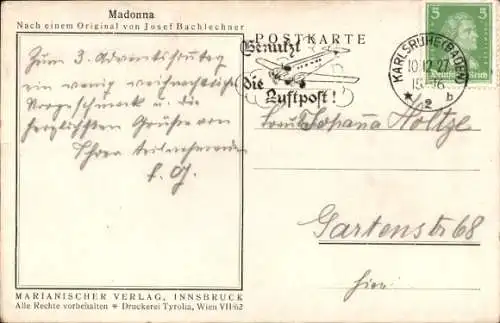 Madonna
Nach einem Original von Josef Bachlechner
Zum 3. Adventsonntag
ein wenig weihnachtliche
Vorgeschmack u. die
herzlichsten Grüße von
Ihrer
POSTKARTE
Benützt
die
Luftpost!
KARLSRUHE (BADEN)
10.12.27
15-16
* 2 b
5 5
Deutsches Reich
Johanna Holtze
Gartenstr 68
hier
MARIANISCHER VERLAG, INNSBRUCK
Alle Rechte vorbehalten * Druckerei Tyrolia, Wien VII/62